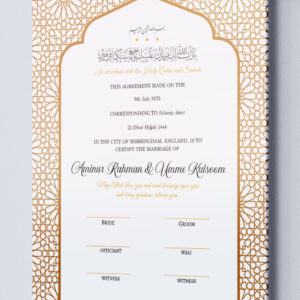 بسم الله الرحمن الرحيم
In accordance with the Holy Quran and Sunnah
THIS AGREEMENT MADE ON THE
9th July 2023
CORRESPONDING TO (Islamic date)
21 Dhul Hijjah 1444
IN THE CITY OF BIRMINGHAM, ENGLAND, IS TO
CERTIFY THE MARRIAGE OF
Aminur Rahman & Umme Kulsoom
May Allah bless you and send blessings upon you
and bring goodness between you
BRIDE
GROOM
OFFICIANT
WALI
WITNESS
WITNESS